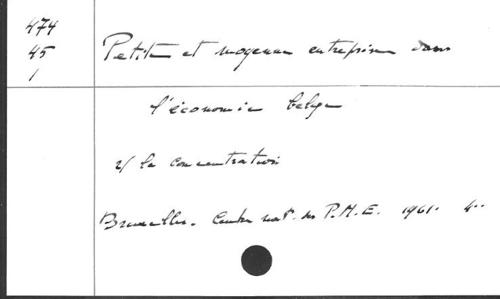 474
45
1
Petite et moyenne entreprise dans
l'économie belge
2/ la concentration
Bruxelles. Centre nat. des P.M.E. 1961. 4..